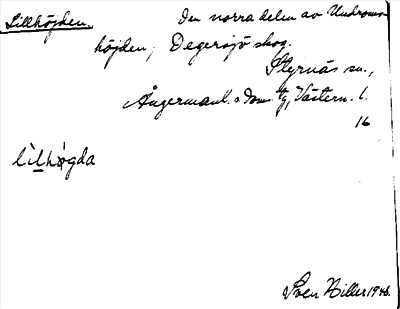 Lillhöjden. Den norra delen av Undroms-
höjden; Degersjö skog.
Styrnäs sn.,
Ångermanl. s. doms. tg, Västern. l.
16
lìlhǿgda
Sven Hiller 1946.